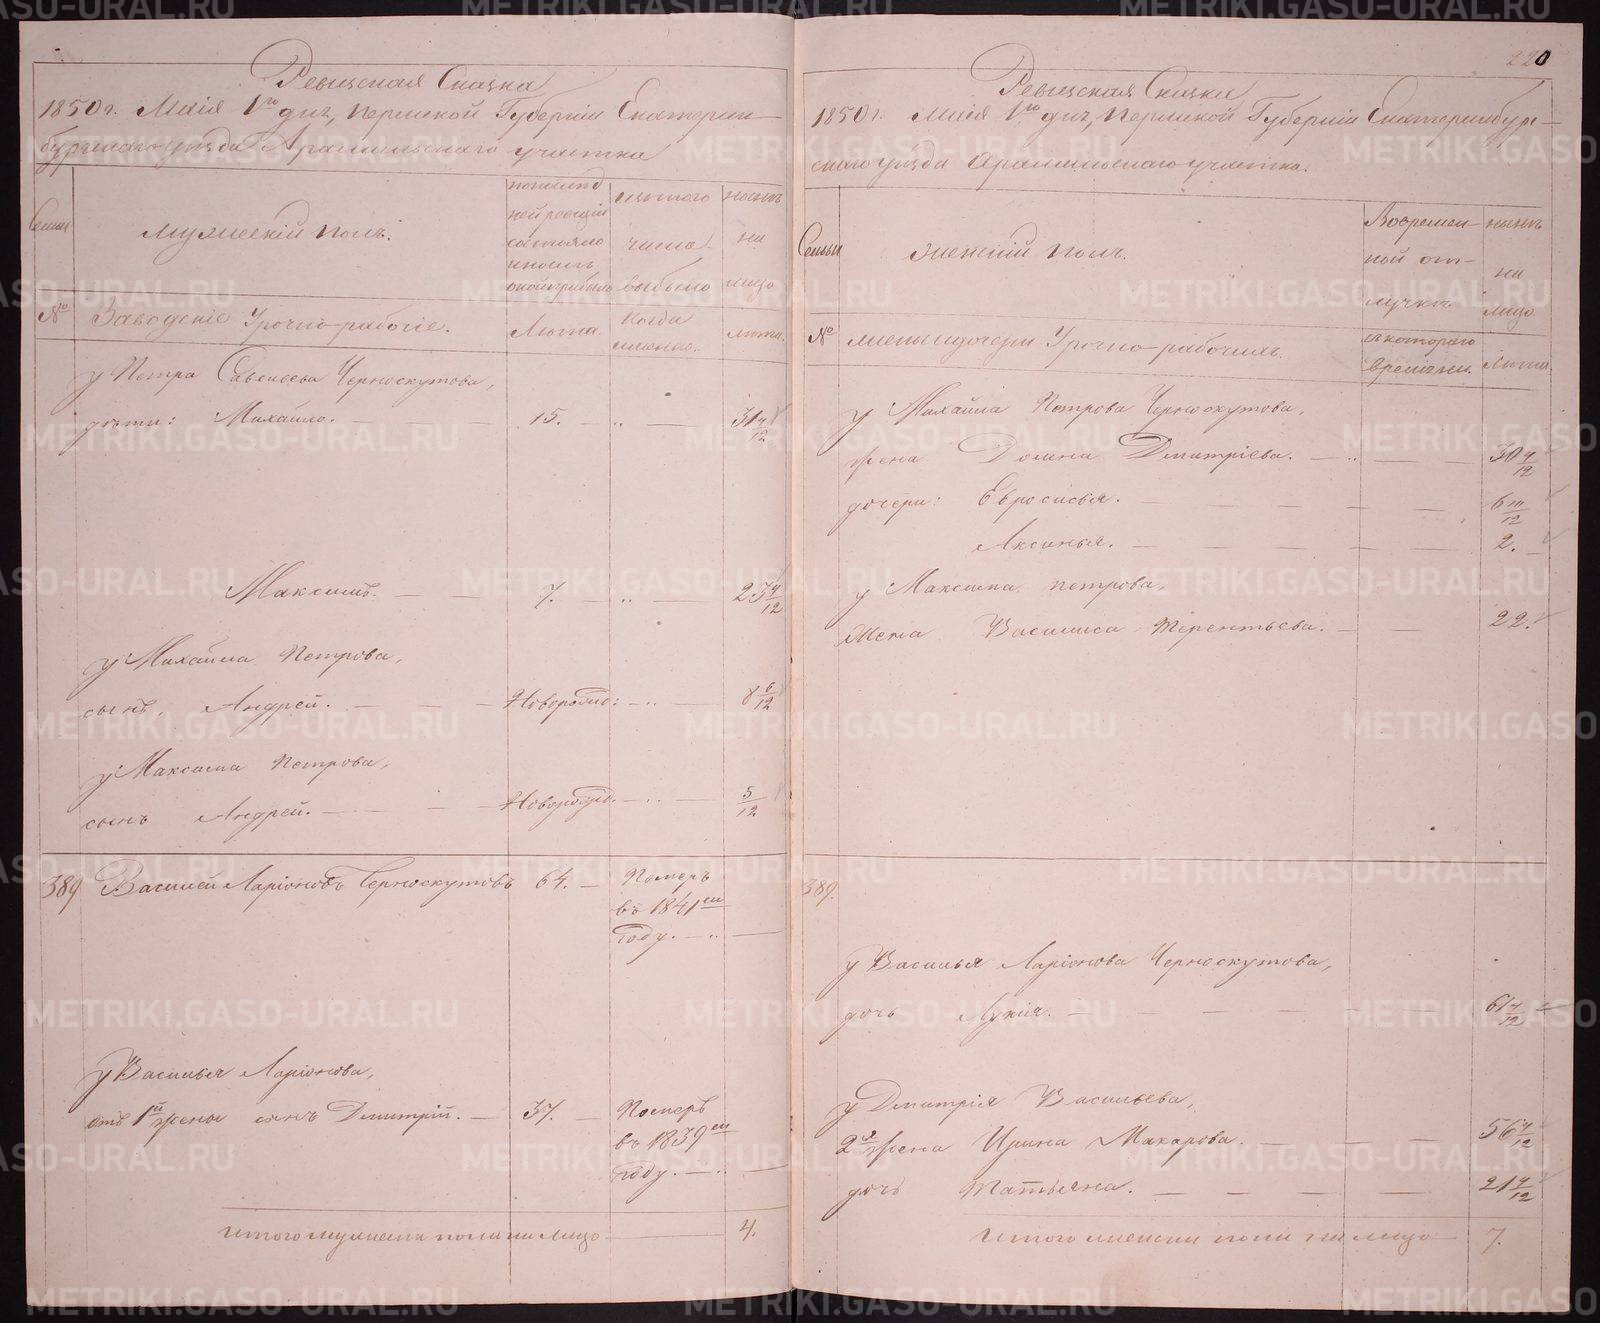 Ревизская Сказка
1850 г. Маія 1го дня, Пермской Губерніи Екатерин-
бургскаго уезда Арамильскаго участка
Семьи
мужескій полъ.
по последней ревизіи состояло и после оной прибыло
изъ того числа выбыло
ныне на лицо
№
Заводскіе Урочно-рабочіе.
Лета.
Когда именно.
лета.
у Петра Савельева Черноскутова,
дети: Михайло. 15. 31 4/12
Максимъ. 7. 23 4/12
у Михайла Петрова,
сынъ, Андрей. Новорожд: 8 6/12
у Максима Петрова,
сынъ Андрей. Новорожд. 5/12
389 Василей Ларіоновъ Черноскутовъ 64. Померъ
въ 1841мъ
году.
у Василья Ларіонова,
отъ 1й жены сынъ Дмитрій. 37. Померъ
въ 1839мъ
году.
Итого мужеска пола на лицо 4.
220
Ревизская Сказка
1850 г. Маія 1го дня, Пермской Губерніи Екатеринбург-
скаго уезда Арамильскаго участка.
Семьи
женскій полъ.
Во временной отлучке
ныне на лицо
№
жены и дочери Урочно-рабочихъ.
съ котораго времени.
лета.
у Михайла Петрова Черноскутова,
жена Домна Дмитріева. 30 4/12
дочери: Евросинья. 6
Аксинья. 2.
у Максима Петрова,
жена Василиса Терентьева. 22.
389.
у Василья Ларіонова Черноскутова,
дочь Лукія. 61 4/12
у Дмитрія Васильева,
2я жена Ирина Макарова. 56 4/12
дочь Татьяна. 21 4/12
Итого женска пола на лицо 7.
METRIKI.GASO-URAL.RU